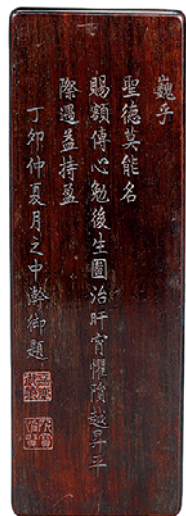 巍乎
聖德莫能名
賜額傳心勉後生圖治旰宵懼隕越昇平
際遇益持盈
丁卯仲夏月之中澣御題